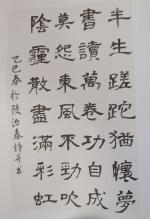 半生蹉跎猶懷夢
書讀萬卷功自成
莫怨東風不勁吹
陰霾散盡滿彩虹
乙巳春於陵治春詩并書